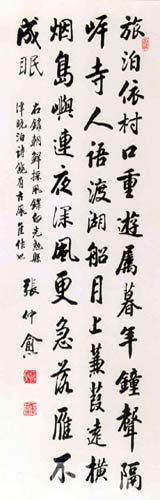 旅泊依村口重遊屬暮年鐘聲隔
岸寺人語渡湖船月上蒹葭遠橫
烟島嶼連夜深風更急落雁不
成眠
右錄朝鮮採風錄光勉縣
津晚泊詩饒有古風佳作也
張仲愈